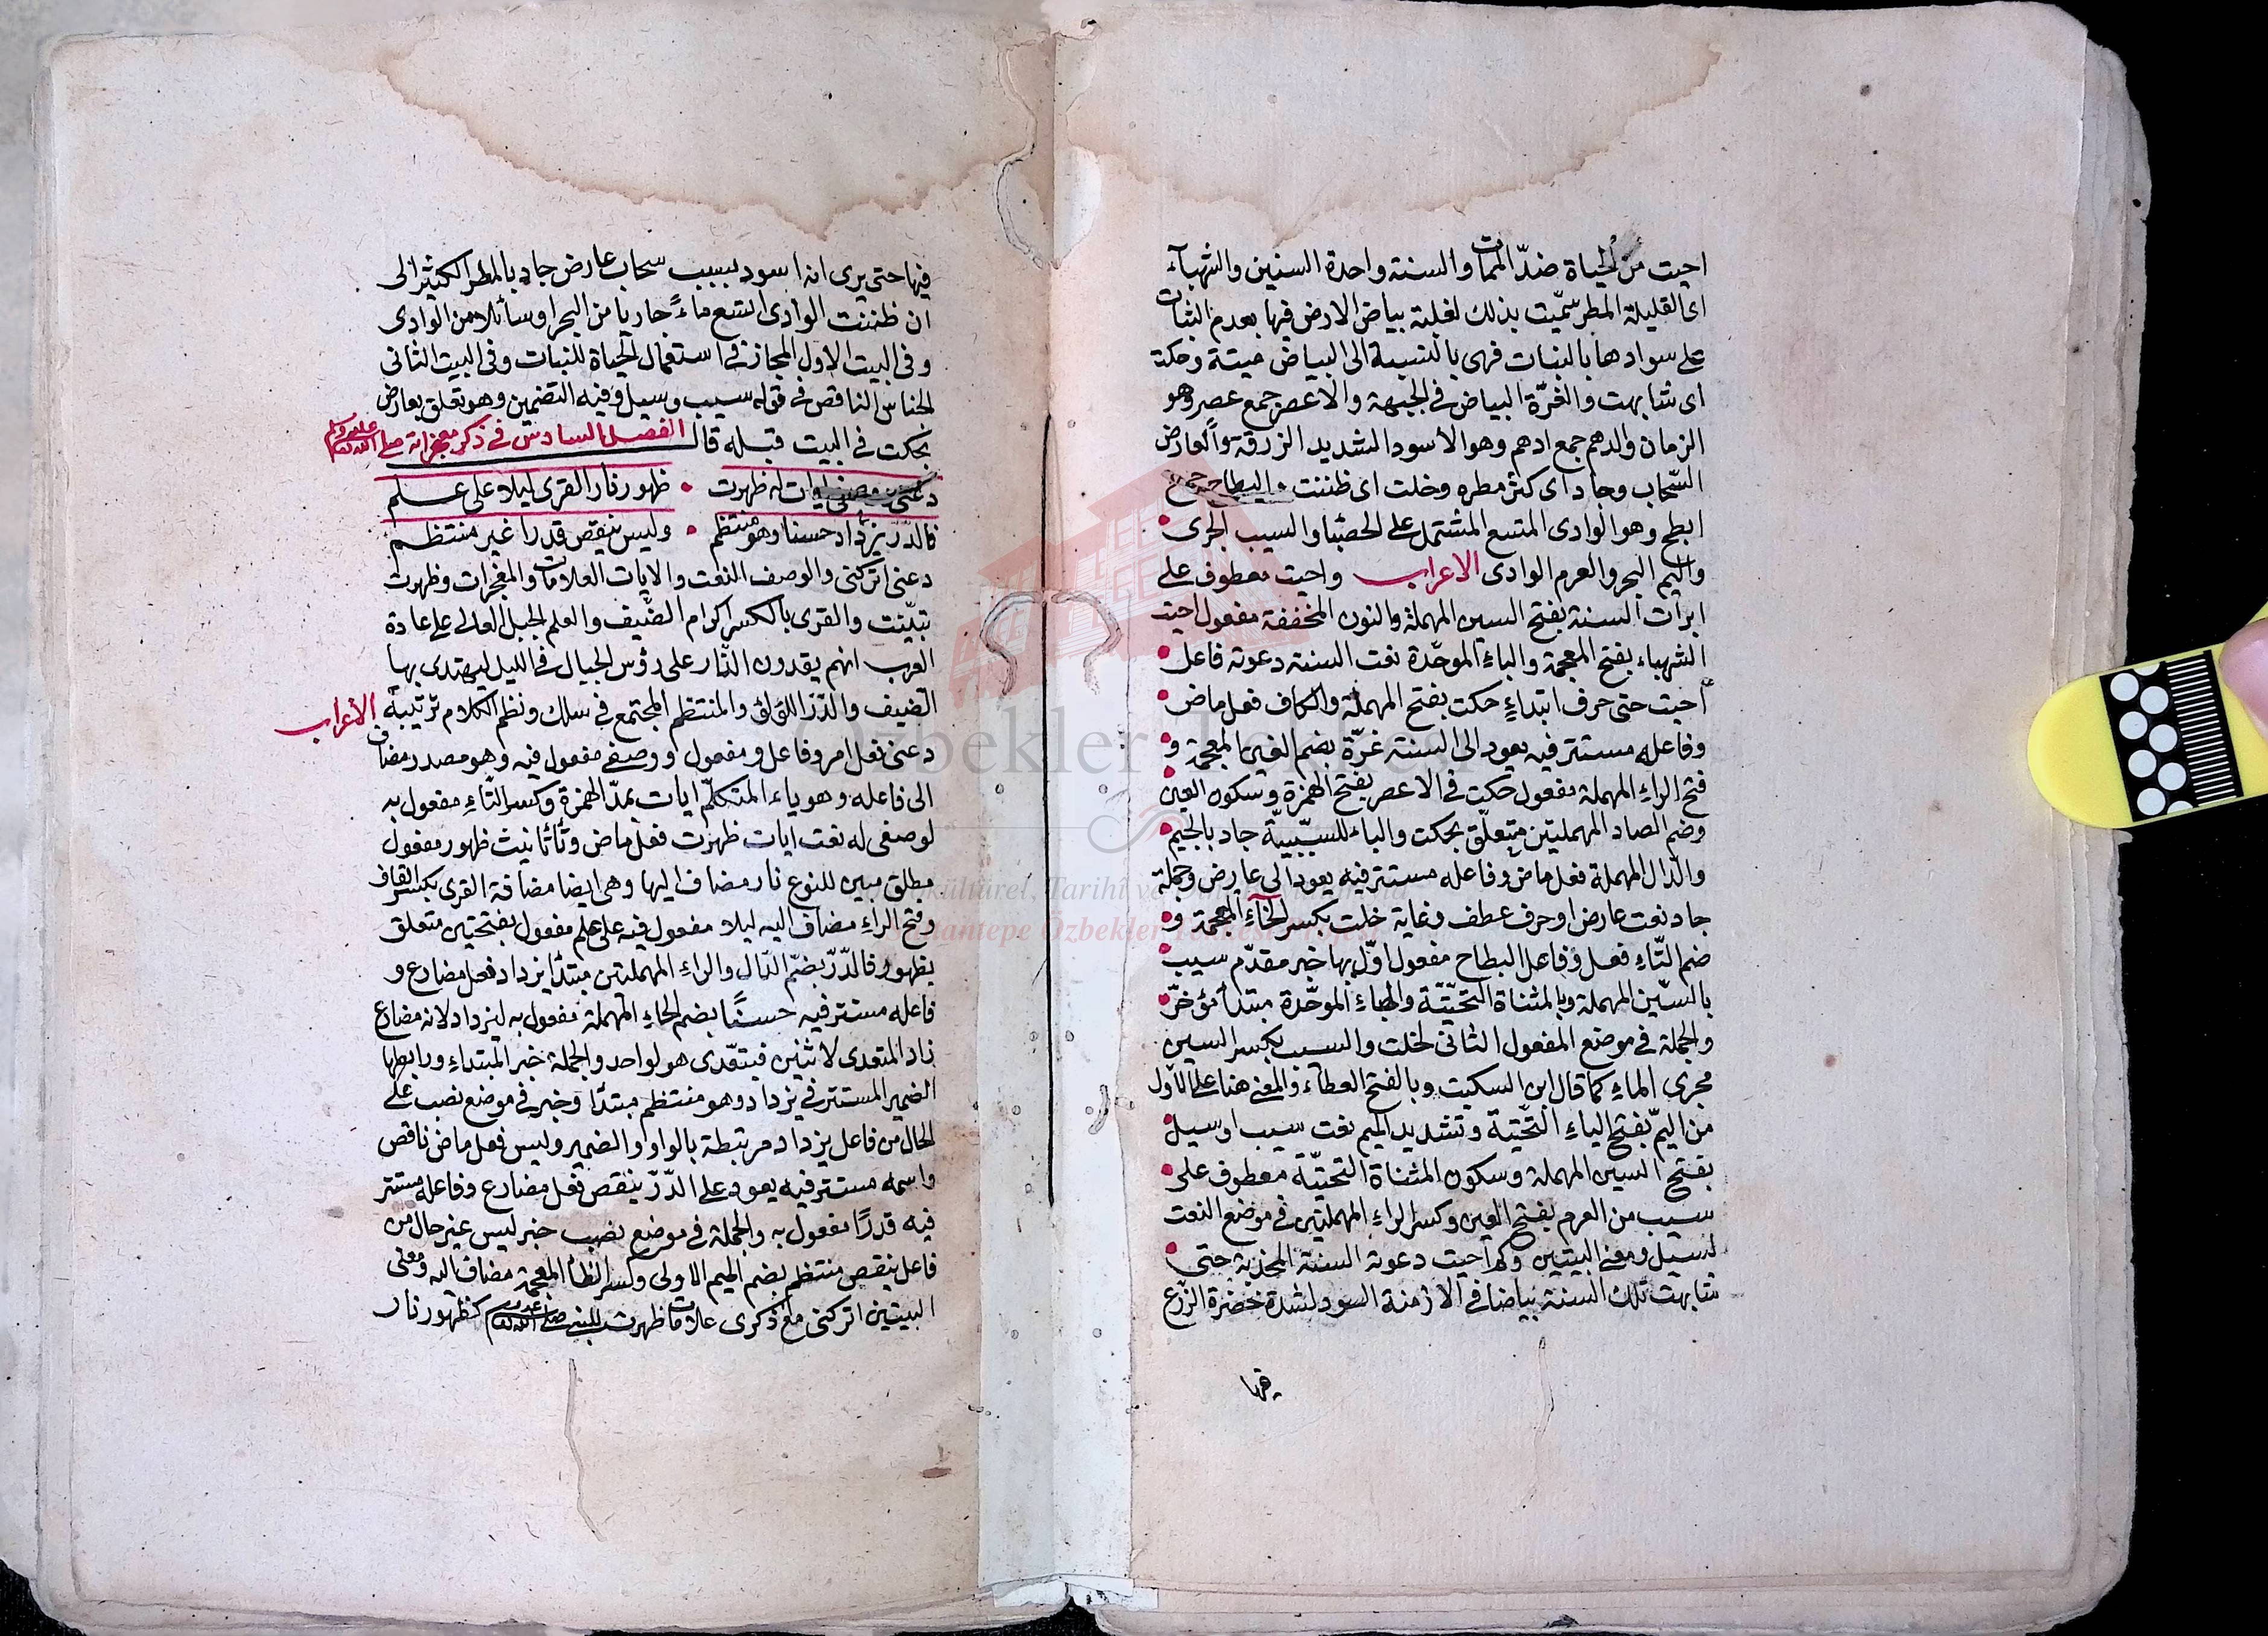 احيت من الحياة ضدّ الممات والسنة واحدة السنين والشهبآء
اى القليلة المطر سمّيت بذلك لغلبة بياض الارض فيها بعدم النبات
على سوادها بالنبات فهى بالنسبة الى البياض ميتة وحكت
اى شابهت والغرّة البياض فى الجبهة والاعصر جمع عصر وهو
الزمان والدهم جمع ادهم وهو الاسود الشديد الزرقة والعارض
السّحاب وجاد اى كثر مطره وخلت اى ظننت والبطاح جمع
ابطح وهو الوادى المتسع المشتمل على الحصبا والسيب الجرى
واليم البحر والعرم الوادى الاعراب واحيت معطوف على
ابرأت السنة بفتح السين المهملة والنون المخففة مفعول احيت
الشهباء بفتح المعجمة والباء الموحّدة نعت السنة دعوته فاعل
احيت حتى حرف ابتداءٍ حكت بفتح المهملة والكاف فعل ماض
وفاعله مستتر فيه يعود الى السنة غرّة بضم الغين المعجمة و
فتح الراء المهملة مفعول حكت فى الاعصر بفتح الهمزة وسكون العين
وضم الصاد المهملتين متعلّق بحكت والباء للسببيّة جاد بالجيم
والدال المهملة فعل ماض وفاعله مستتر فيه يعود الى عارض وجملة
جاد نعت عارض او حرف عطف وغاية خلت بكسر الخآء المعجمة و
ضم التّاء فعل وفاعل البطاح مفعول اوّل بها خبر مقدّم سيب
بالسّين المهملة وبالمثناة التحتيّة والباء الموحّدة مبتدأ مؤخرّ
والجملة فى موضع المفعول الثانى لخلت والسيب بكسر السين
مجرى الماء كما قال ابن السكيت وبالفتح العطاء والمعنى هنا على الاول
من اليمّ بفتح الياء التّحتيّة وتشديد الميم نعت سيب او سيل
بفتح السين المهملة وسكون المثناة التحتيّة معطوف على
سيب من العرم بفتح العين وكسر الراء المهملتين فى موضع النعت
لسيل ومعنى البيتين وكم احيت دعوته السنة المجدبة حتى
شابهت تلك السنة بياضا فى الازمنة السود لشدة خضرة الزّرع
فيها
فيها حتى يرى انه اسود بسبب سحاب عارض جاد بالمطر الكثير الى
ان ظننت الوادى المتسع ماءً جاريا من البحر او سائلا من الوادى
وفى البيت الاول المجاز فى استعمال الحياة للنبات وفى البيت الثانى
الجناس الناقص فى قوله سيب وسيل وفيه التضمين وهو تعلق بعارض
بحكت فى البيت قبله قال الفصل السادس فى ذكر معجزاته صلى الله تعالى عليه وسلم
دعنى ووصفى ايات له ظهرت • ظهور نار القرى ليلا على علم
فالدّرّ يزداد حسنا وهو منتظم • وليس ينقص قدرا غير منتظم
دعنى اتركنى والوصف النعت والايات العلامات والمعجزات وظهرت
تبيّنت والقرى بالكسر اكرام الضّيف والعلم الجبل العالى على عادة
العرب انهم يقدون النّار على رؤس الجبال فى الليل ليهتدى بها
الضيف والدّرّ اللؤلؤ والمنتظم المجتمع فى سلك ونظم الكلام ترتيبه الاعراب
دعنى فعل امر وفاعل ومفعول ووصفى مفعول فيه وهو مصدر مضاف
الى فاعله وهو ياء المتكلّم ايات بمدّ الهمزة وكسر التّاء مفعول به
لوصفى له نعت ايات ظهرت فعل ماض وتاء تانيث ظهور مفعول
مطلق مبين للنوع نار مضاف اليها وهى ايضا مضافة القرى بكسر القاف
وفتح الراء مضاف اليه ليلا مفعول فيه على علم مفعول بفتحتين متعلق
بظهور فالدّرّ بضمّ الدّال والراء المهملتين مبتدأ يزداد فعل مضارع و
فاعله مستتر فيه حسنًا بضم الحاء المهملة مفعول به ليزداد لانه مضارع
زاد المتعدى لاثنين فيتعّدى هو لواحد والجملة خبر المبتداء ورابطها
الضمير المستتر فى يزداد وهو منتظم مبتدأ وخبر فى موضع نصب على
الحال من فاعل يزداد مرتبطة بالواو والضمير وليس فعل ماض ناقص
واسمه مستتر فيه يعود على الدّرّ ينقص فعل مضارع وفاعله مستتر
فيه قدرًا مفعول به والجملة فى موضع نصب خبر ليس غير حال من
فاعل ينقص منتظم بضم الميم الاولى وكسر الظاء المعجمة مضاف اليه ومعنى
البيتين اتركنى مع ذكرى علامات ظهرت للنبى صلى الله تعالى عليه وسلم كظهور نار